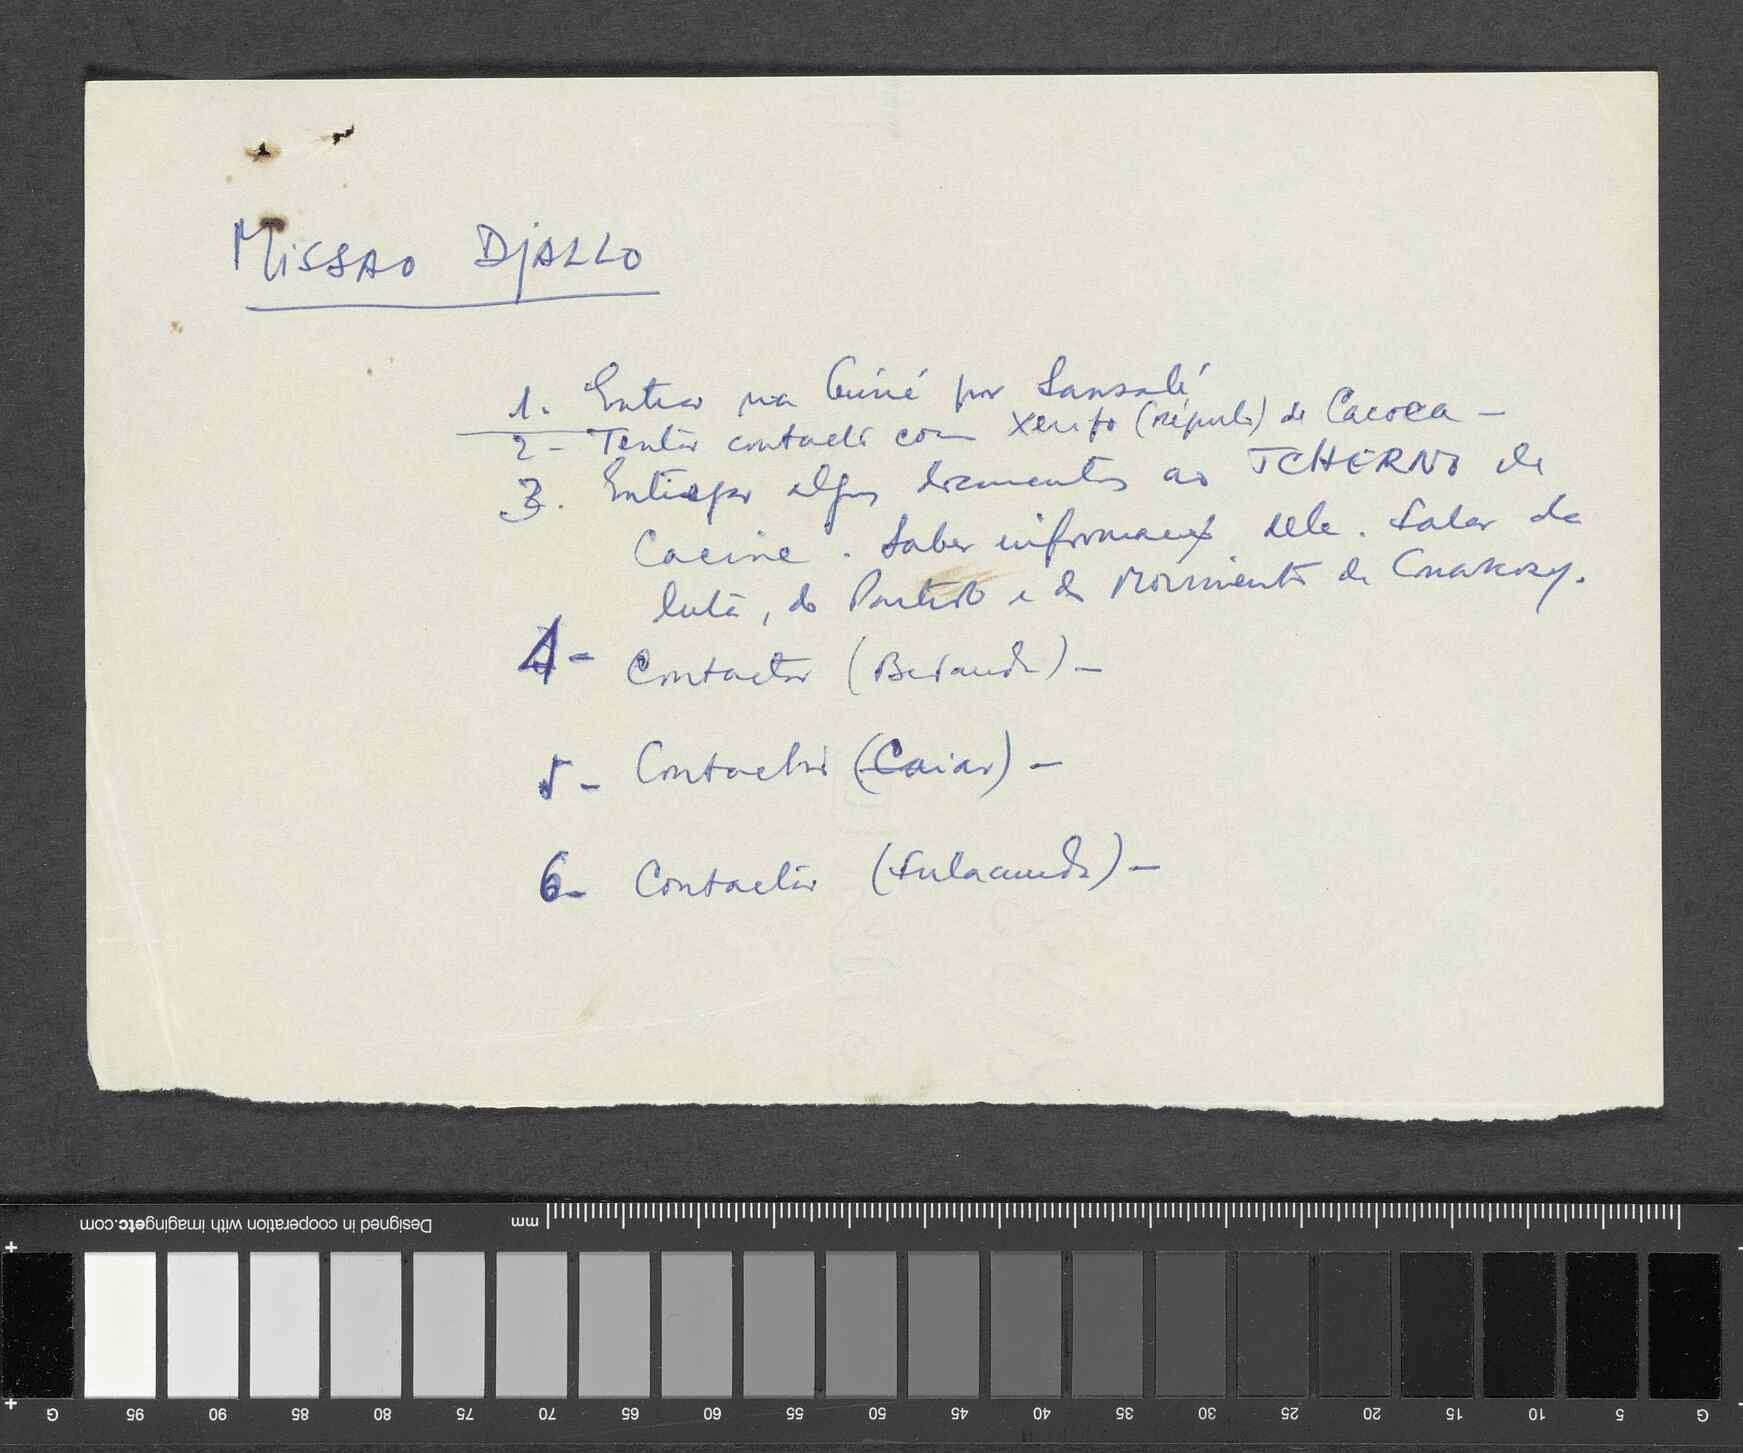 MISSAO DJALLO
1. Entrar na Guiné por Sansalé
2 - Tentar contacto com Xerifo (régulo) de Cacoca -
3. Entregar alguns documentos ao TCHERNO de
Cacine. Saber informações dele. Falar da
luta, do Partido e do Movimento de Conakry.
4 - Contactar (Bedanda) -
5 - Contactar (Caiar) -
6 - Contactar (Fulacunda) -
Designed in cooperation with imagingetc.com
mm
G 95 90 85 80 75 70 65 60 55 50 45 40 35 30 25 20 15 10 5 G